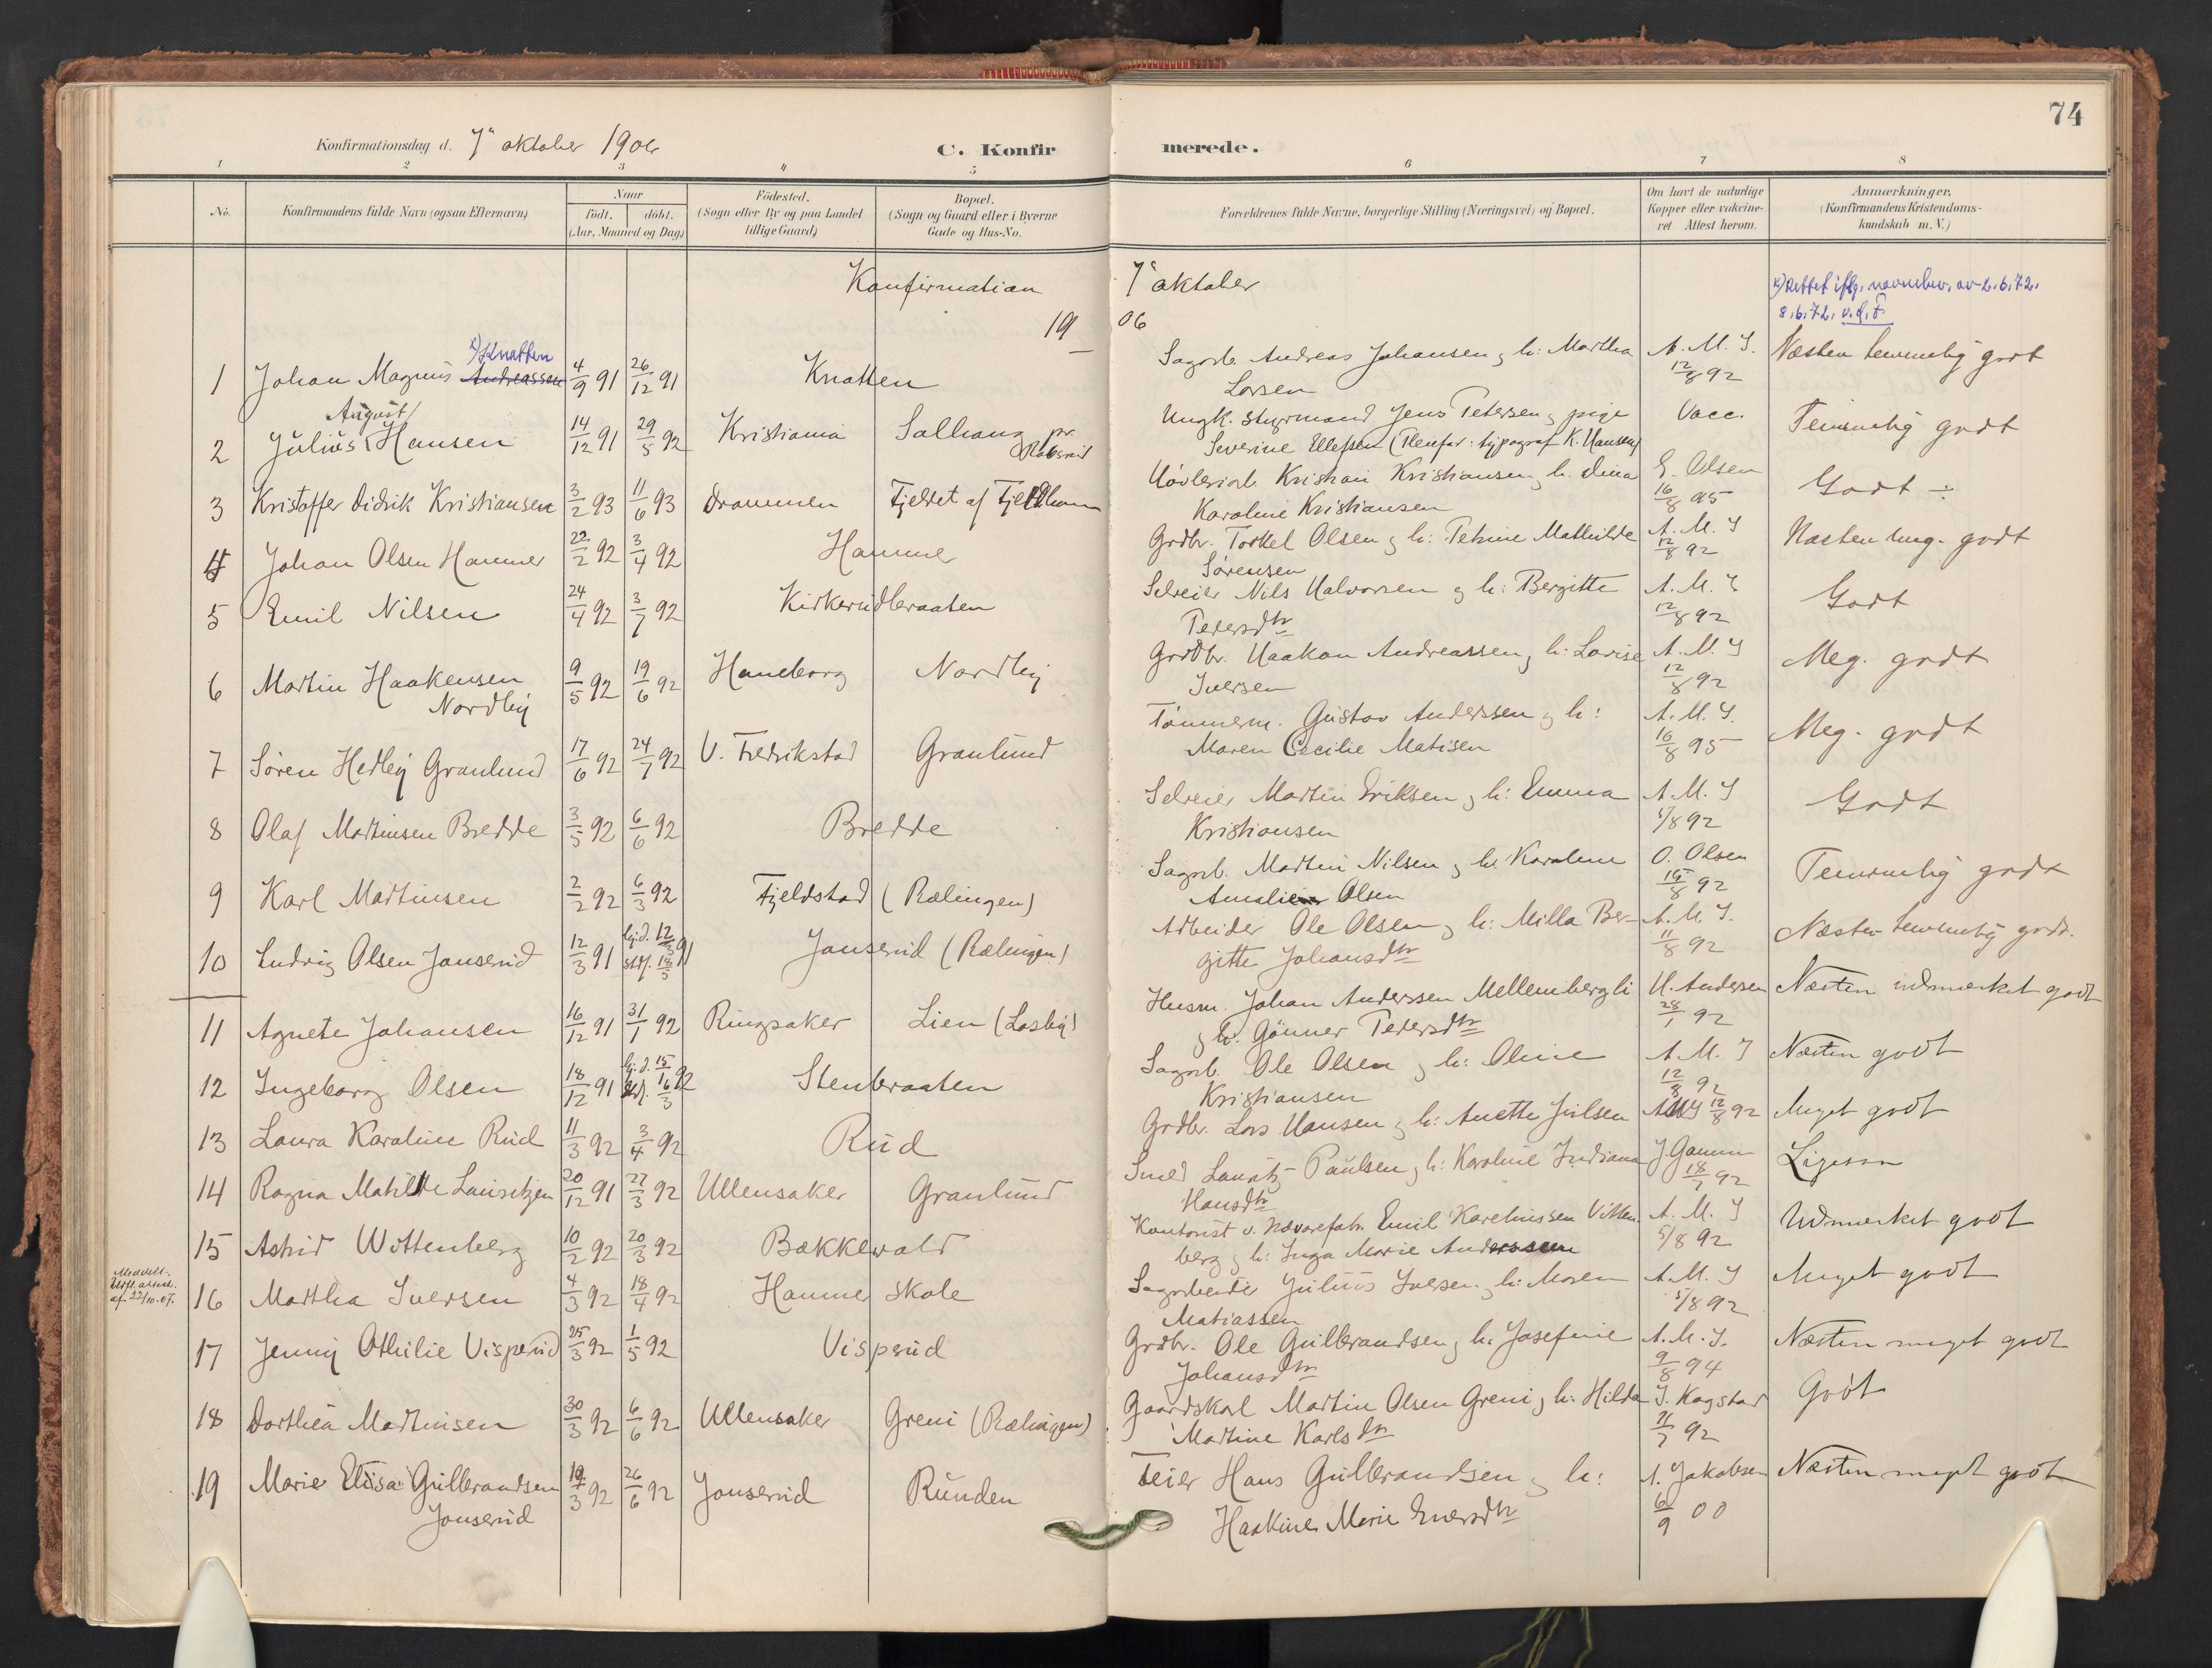 74
Konfirmationsdag d. 7de oktober 1906
C. Konfirmerede.
1 2 3 4 5 6 7 8
No. Konfirmandens fulde Navn (ogsaa Efternavn) Naar födt. döbt. (Aar, Maaned og Dag) Födested. (Sogn eller By og paa Landet tillige Gaard) Bopæl. (Sogn og Gaard eller i Byerne Gade og Hus-No. Forældrenes fulde Navne, borgerlige Stilling (Næringsvei) og Bopæl. Om havt de naturlige Kopper eller vakcineret. Attest herom. Anmærkninger. (Konfirmandens Kristendomskundskab m. V.)
Konfirmation 7de oktober
1906
x) Rettet iflg. navnebev. av 2.6.72.
8.6.72.
x) Knatten
1 Johan Magnus Andreassen 4/9 91 26/12 91 Knatten Sagarb. Andreas Johansen og h: Martha A. M. I. Næsten temmelig godt
Larsen 12/8 92
August
2 Julius Hansen 14/12 91 29/5 92 Kristiania Solhaug pr. Robsrud Ungk. styrmand Jens Petersen og pige Vacc. Temmelig godt
Severine Ellefsen (Plenfar: typograf K. Hansen)
3 Kristoffer Didrik Kristiansen 3/2 93 11/6 93 Drammen Fjeldet af Fjeldham Høvleriarb. Kristian Kristiansen og h. Dina E. Olsen Godt ÷
Karoline Kristiansen 16/8 95
4 Johan Olsen Hammer 22/2 92 3/4 92 Hammer Grdbr. Torkel Olsen og h: Petrine Mathilde A. M. I Næsten meg. godt
Sørensen 12/8 92
5 Emil Nilsen 24/4 92 3/7 92 Kirkerudbraaten Selveier Nils Halvorsen og h: Bergitte A. M. I Godt
Pedersdtr 12/8 92
6 Martin Haakensen 9/5 92 19/6 92 Haneborg Nordby Grdbr. Haakon Andreassen og h: Lovise A. M. I Meg. godt
Nordby Iversen 12/8 92
7 Søren Hedley Granlund 17/6 92 24/7 92 V. Fredrikstad Granlund Tømmerm. Gustav Anderssen og h: A. M. I. Meg. godt
Maren Cecilie Matisen 16/8 95
8 Olaf Martinsen Bredde 3/5 92 6/6 92 Bredde Selveier Martin Eriksen og h: Emma A. M. I Godt
Kristiansen 5/8 92
9 Karl Martinsen 2/2 92 6/3 92 Fjeldstad (Rælingen) Sagarb. Martin Nilsen og h: Karoline O. Olsen Temmelig godt
Amalie Olsen 15/8 92
10 Ludvig Olsen Jonserud 12/3 91 hj.d. 12/3 stdf. 18/5 91 Jonserud (Rælingen) Arbeider Ole Olsen og h: Milla Ber- A. M. I. Næsten temmelig godt.
gitte Johansdtr 11/8 92
11 Agnete Johansen 16/12 91 31/1 92 Ringsaker Lien (Losby) Husm. Johan Anderssen Mellembergli H. Andersen Næsten udmerket godt
og h. Gunner Pedersdtr 28/1 92
12 Ingeborg Olsen 18/12 91 hj.d. 15/1 stdf. 16/3 92 Stenbraaten Sagarb. Ole Olsen og h: Oline A. M. I Næsten godt
Kristiansen 12/8 92
13 Laura Karoline Rud 11/3 92 3/4 92 Rud Grdbr. Lars Hansen og h: Anette Julsen AMI 12/8 92 Meget godt
14 Ragna Matilde Lauritzen 20/12 91 27/3 92 Ullensaker Granlund Smed Lauritz Paulsen og h: Karoline Indiana Ligesaa
Hansdtr 18/7 92
15 Astrid Wittenberg 10/2 92 20/3 92 Bakkevold Kontorist v. Nævarefabr. Emil Kareliussen Vitten- A. M. I Udmerket godt
berg og h: Inga Marie Anderssen 5/8 92
Meddelt
attest
af 22/10.07.
16 Martha Iversen 4/3 92 18/4 92 Hammer Skole Sagarbeider Julius Iversen og h: Maren A. M. I Meget godt
Matiassen 5/8 92
17 Jenny Othilie Visperud 25/3 92 1/5 92 Visperud Grdbr. Ole Gulbrandsen og h: Josefine A. M. I. Næsten meget godt
Johansdtr 9/8 94
18 Dorthea Martinsen 30/3 92 6/6 92 Ullensaker Greni (Rælingen) Gaardskarl Martin Olsen Greni og h: Hilda I. Kogstad Godt
Martine Karlsdtr 21/7 92
19 Marie Elisa Gulbrandsen 19/3 92 26/6 92 Jonserud Runden Feier Hans Gulbrandsen og h: A. Jakobsen Næsten meget godt
Jonserud Haakine Marie Enersdtr 6/9 00